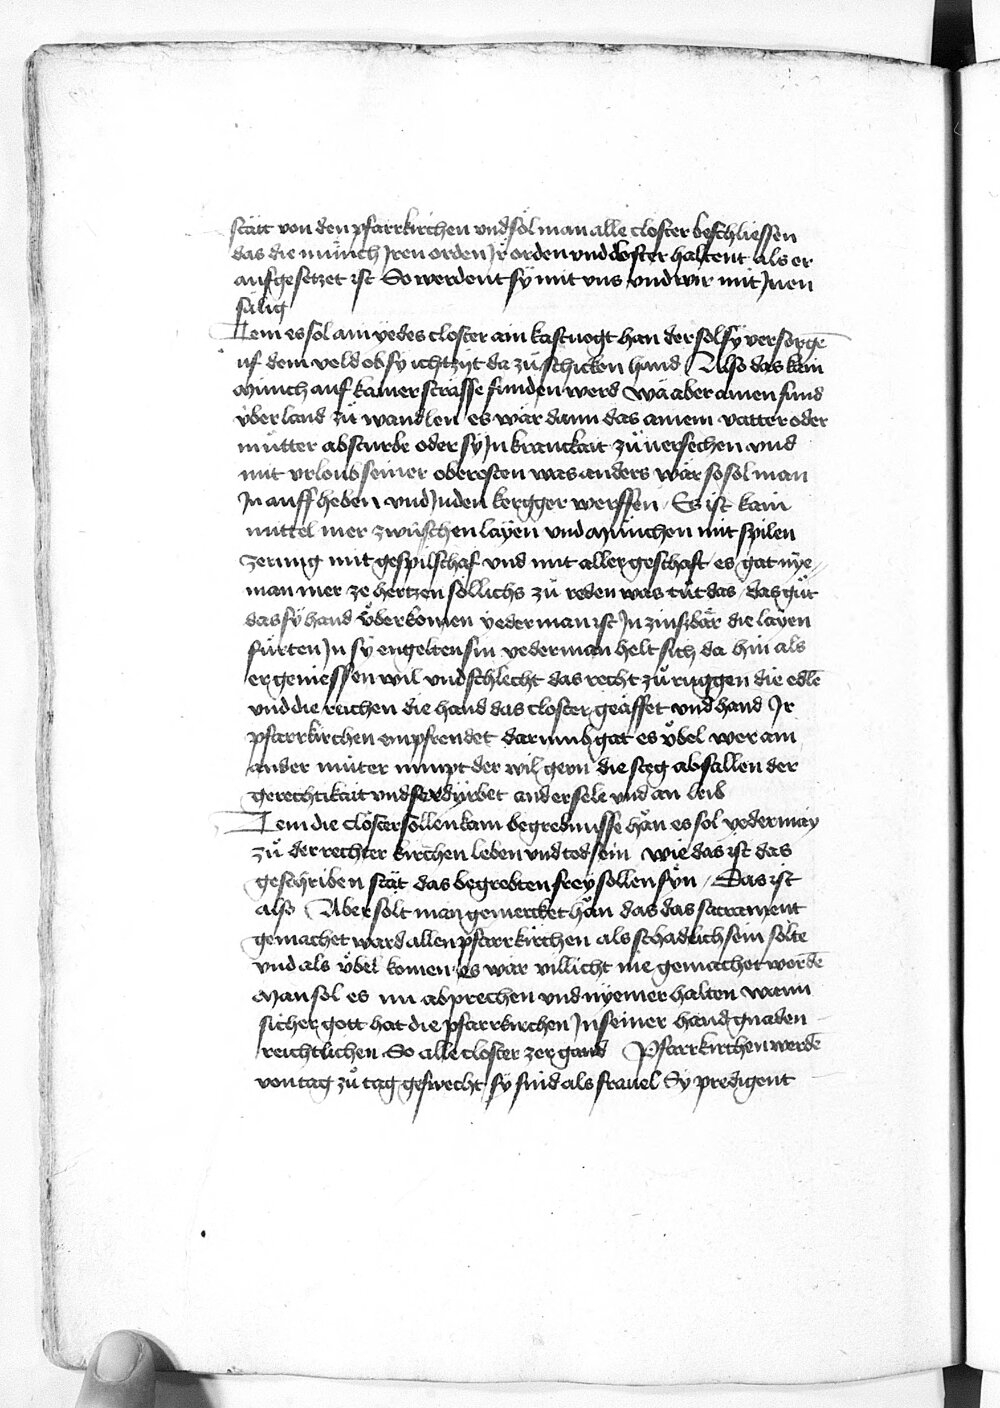 stätt von den pfarrkirchen vnd söl man alle closter beschliessen
das die münch Jren orden Jr orden vnd closter haltent als er
aufgesetzet ist So werdent sÿ mit vns vnd wir mit Jnen
sälig
Item es sol ain yedes closter ain kastuogt han der sol sy versorgē
uf dem veld ob sy ichtzÿt da zů schicken hand Also das kain
Münch auf kainer strässe funden werd wä aber ainen fund
vber land zů wandlen es wär dann das ainem vatter oder
můtter absturbe oder sy Jn kranckait zů uersechen vnd
mit vrloub seiner oberosten was anders wär so sol man
Jn auff heben vnd Jn den kergger werffen Es ist kain
mittel mer zwüschen layen vnd München mit spilen
zerung mit gespilschaf vnd mit aller geschaft es gat nye
man mer ze hertzen söllichs zů reden was tůt das das gůt
das sÿ hand v̊berkomen yederman ist Jn zinsbär die layen
fürten Jn sy engelten sin yederman helt sich da hin als
er geniessen wil vnd schlecht das recht zů ruggen die edlē
vnd die reichen die hand das closter geäffet vnd hand Jr
pfarrkirchen empfrendet darumb gat es v̊bel wer ain
ander můter nimpt der wil gern die steg abfallen der
gerechtikait vnd ferdÿrbet an der sele vnd an leib
Item die clöster söllen kain begrebnusse hän es sol yederman
zů der rechter kirchen leben vnd tod sein wie das ist das
geschriben stät das begrebten freÿ söllen sÿn Das ist
also Aber solt man gemercket hän das das sacrament
gemachet ward allen pfarrkirchen als schadlich sein sölte
vnd als v̊bel komen es wär villicht nie gemachet wordē
Man sol es nu absprechen vnd nyemer halten wann
sicher gott hat die pfarrkirchen Jn seiner hand gnaden
reichtlichen So alle closter zergand Pfarrkirchen werdē
von tag zů tag geswecht sy sind als frauel Sy predigent